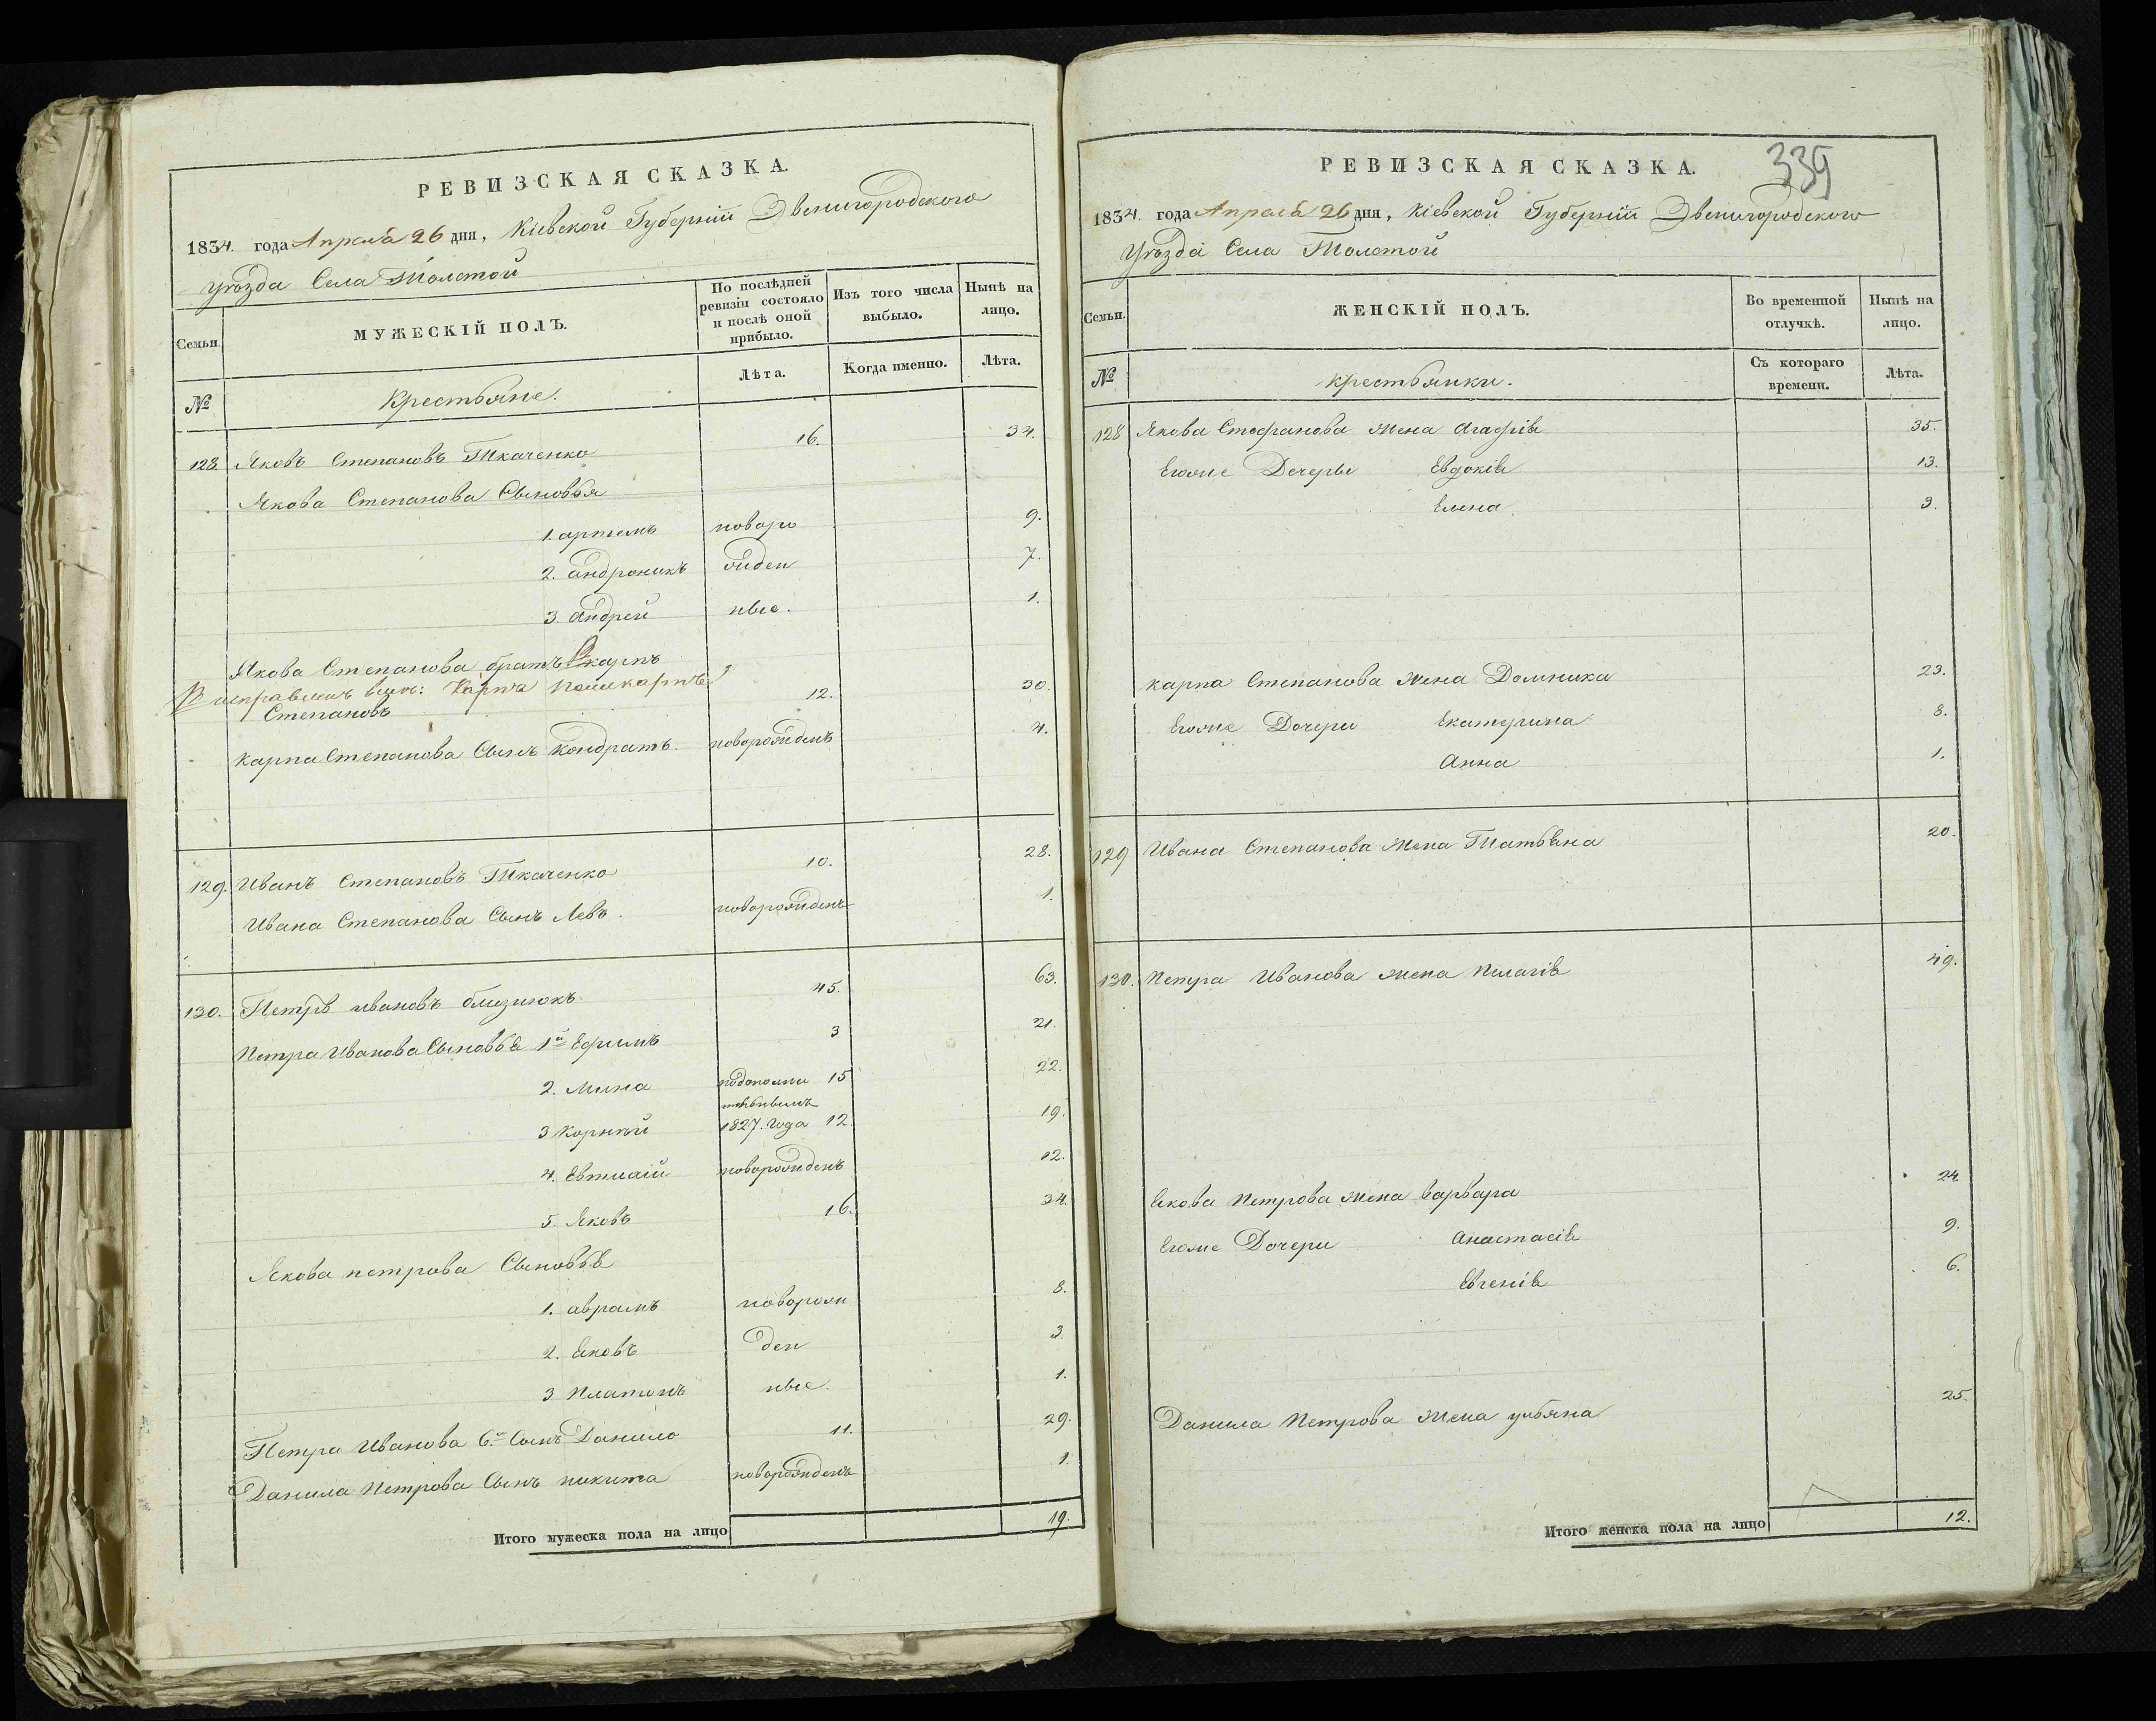 РЕВИЗСКАЯ СКАЗКА.
1834. года Апреля 26 дня, Кіевской Губерніи Звенигородского
Уѣзда Села Толстой
Семьи.
МУЖЕСКІЙ ПОЛЪ.
По послѣдней ревизіи состояло и послѣ оной прибыло.
Изъ того числа выбыло.
Нынѣ на лицо.
№
Крестьяне.
Лѣта.
Когда именно.
Лѣта.
128 Яковъ Степановъ Ткаченко 16. 34.
Якова Степанова Сыновья
1. артемъ новоро 9.
2. андроникъ жден 7.
3 андрей ные. 1.
Якова Степанова братъ карпъ
Степановъ 12. 30.
карпа Степанова Сынъ Кондратъ. новорожденъ 4.
129. Иванъ Степановъ Ткаченко 10. 28.
Ивана Степанова Сынъ Левъ. новорожденъ 1.
130. Петръ ивановъ близнюкъ 45. 63.
Петра Иванова Сыновья 1й Ефимъ 3 21.
2. Мина 15 22.
3 Корнѣй 1827. года 12. 19.
4. новорожденъ 12.
5. Яковъ 16. 34.
Якова петрова Сыновья
1. аврамъ the новорож 8.
2. Яковъ ден 3.
3 Платонъ ные. 1.
Петра Иванова 6й Сынъ Данило 11. 29.
Данила Петрова Сынъ никита новорожденъ 1
Итого мужеска пола на лицо 19.
РЕВИЗСКАЯ СКАЗКА.
339
1834. года Апреля 26 дня, Кіевской Губерніи Звенигородского
Уѣзда Села Толстой
Семьи.
ЖЕНСКІЙ ПОЛЪ.
Во временной отлучкѣ.
Нынѣ на лицо.
№
крестьянки.
Съ котораго времени.
Лѣта.
128 Якова Стефанова жена Агафія 35.
Егоже Дочеры Евдокія 13.
Елена. 3.
карпа Степанова жена Домника 23.
Егоже Дочери Екатерина 8.
Анна 1.
129 Ивана Степанова жена Татьяна 20.
130. Петра Иванова жена Пелагія 49.
Якова Петрова жена варвара 24.
Егоже Дочери Анастасія 9.
Евгенія 6.
Данила Петрова жена ульяна 25.
Итого женска пола на лицо 12.